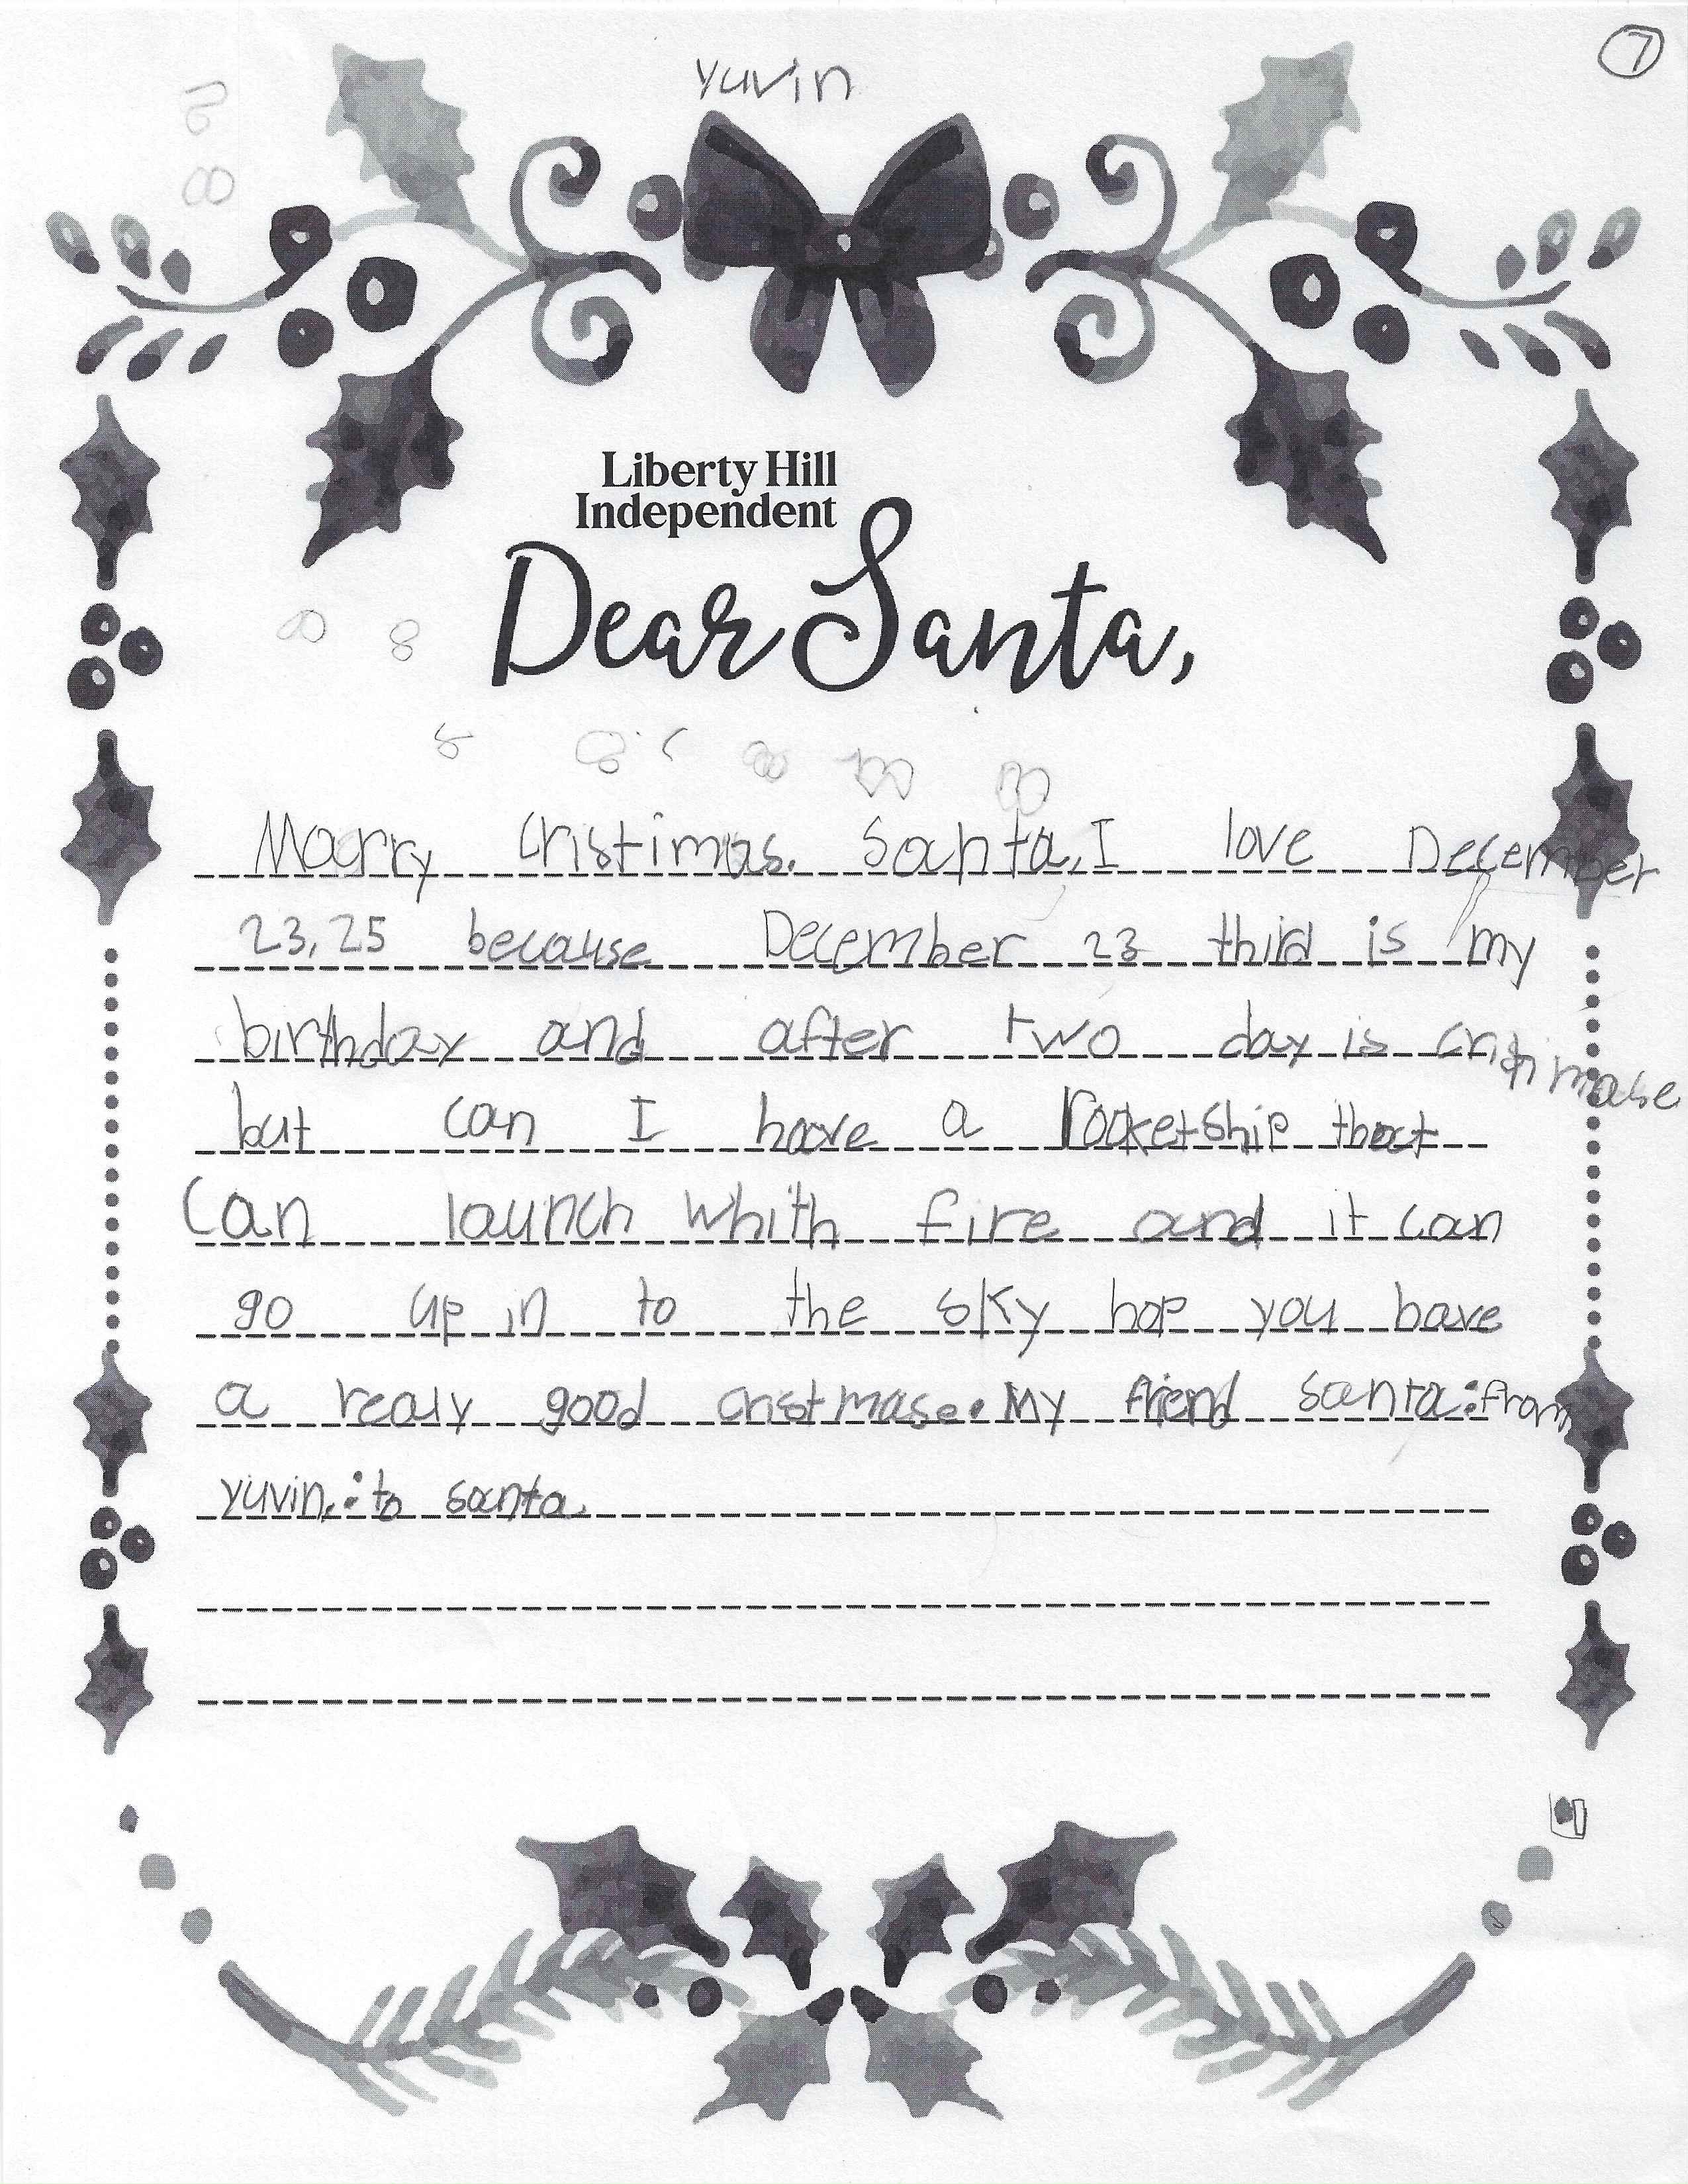 yuvin
7
Liberty Hill
Independent
Dear Santa,
Marry Cristimas. Santa, I love December
23, 25 because December 23 third is my
birthday and after two day is cristimase
but can I have a rocketship that
can launch whith fire and it can
go up in to the sky hop you have
a realy good cristmase. My friend santa: from
yuvin.: to santa.